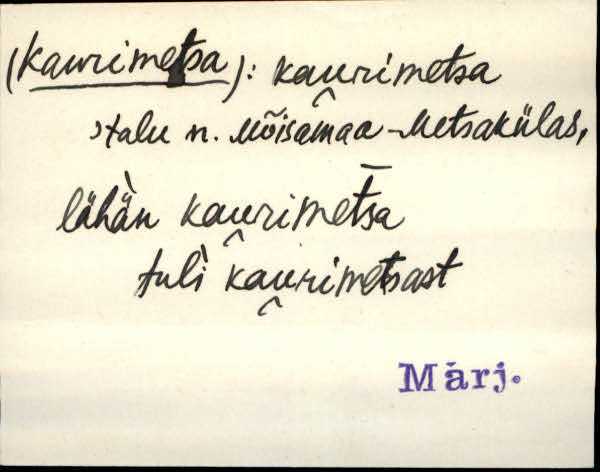 (Kaurimetsa): kaurimetsa
›talu n. Mõisamaa-Metsakülas,
lähàn kaurimets̄a
tulì kaurimetsast
Märj.